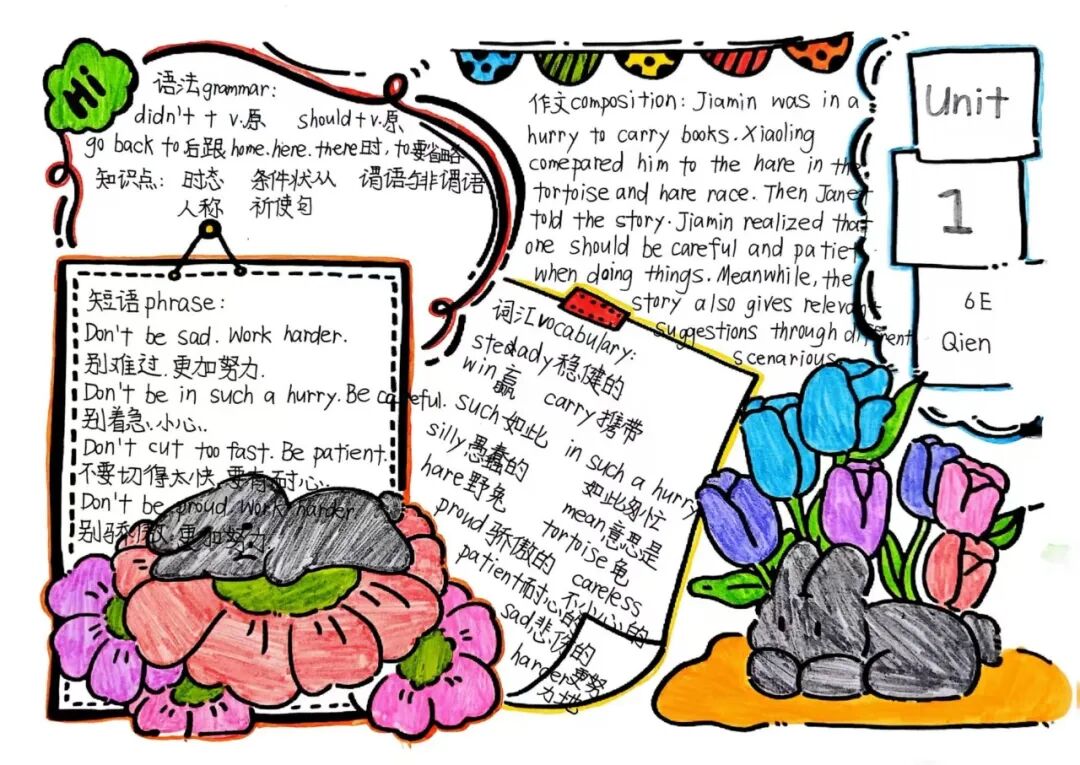 Hi
语法grammar:
didn't + v.原 should+v.原
go back to后跟home.here.there时,to要省略
知识点: 时态 条件状从 谓语与非谓语
人称 祈使句
短语phrase:
Don't be sad. Work harder.
别难过.更加努力.
Don't be in such a hurry. Be careful.
别着急.小心.
Don't cut too fast. Be patient.
不要切得太快.要有耐心.
Don't be proud. Work harder
别骄傲.更加努力
作文composition: Jiamin was in a
hurry to carry books. Xiaoling
comepared him to the hare in the
tortoise and hare race. Then Janet
told the story. Jiamin realized that
one should be careful and patiet
when doing things. Meanwhile, the
story also gives relevant
suggestions through different
scenarious
词汇vocabulary:
稳健的
win赢 carry携带
such如此 in such a hurry
如此匆忙
silly愚蠢的
hare野兔 mean意思是
tortoise龟
proud骄傲的 careless
不小心的
patient耐心的
sad悲伤的
harder更努
力地
Unit
1
6E
Qien